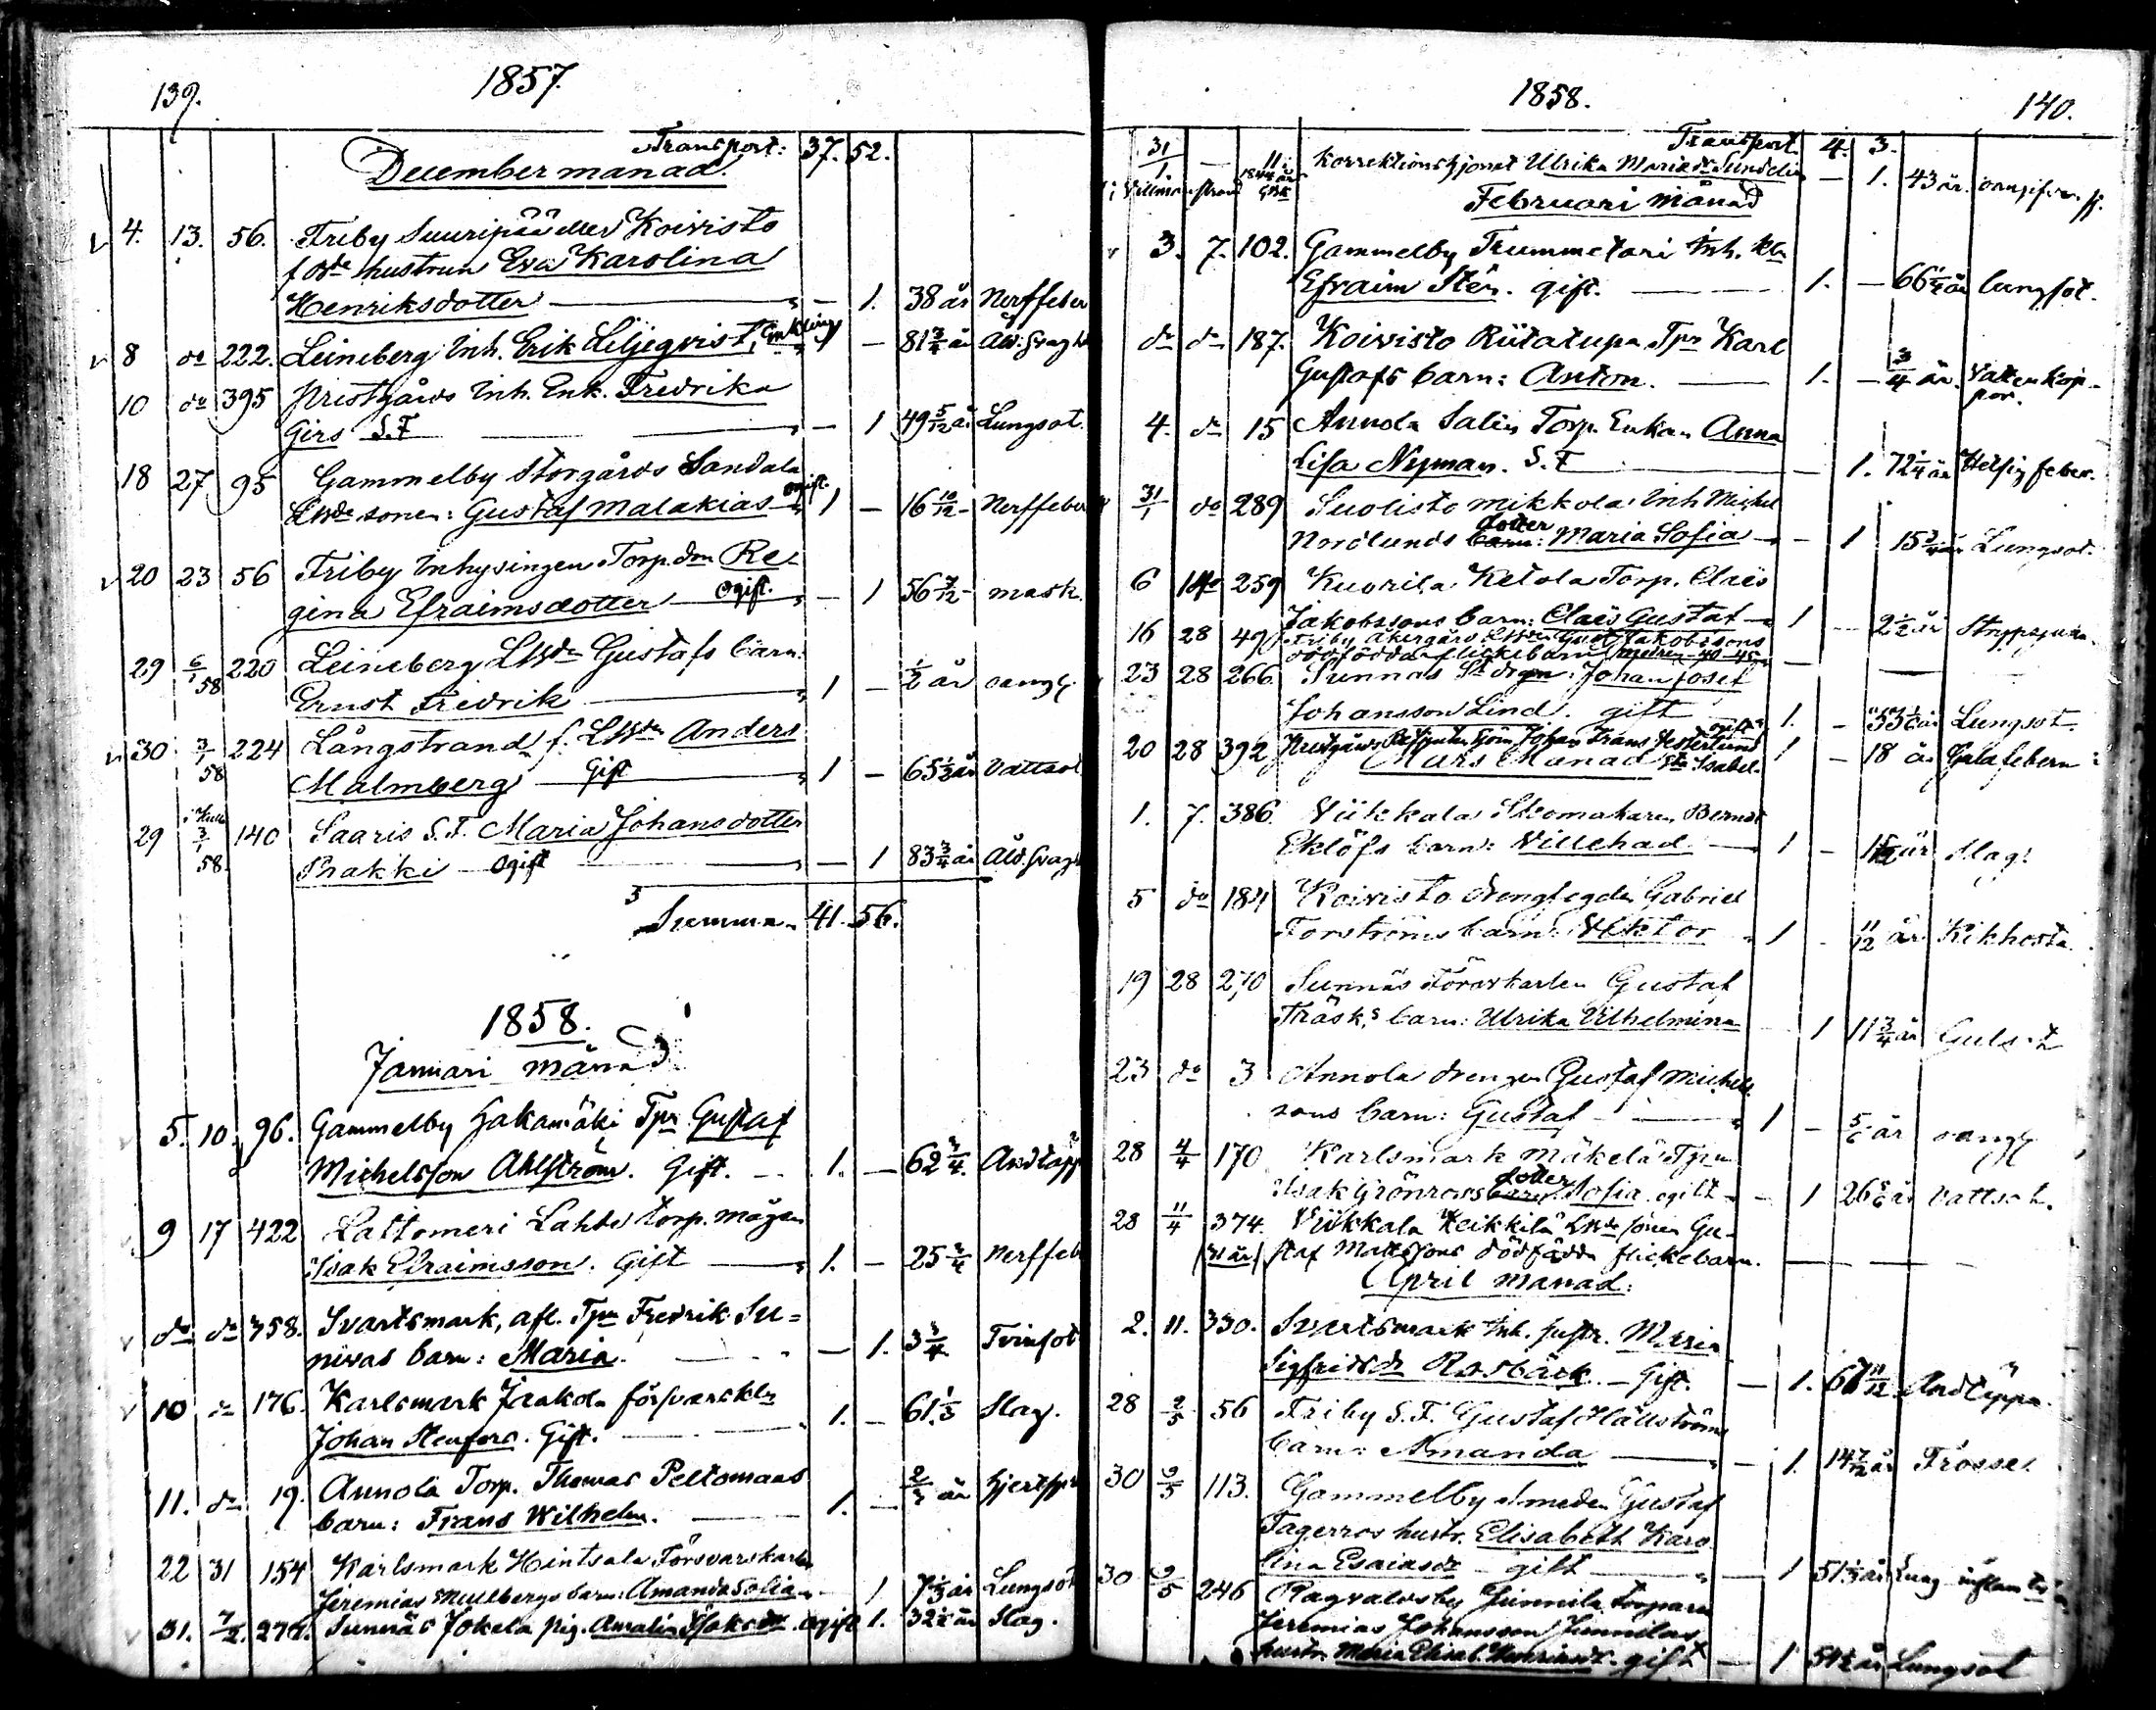 139. 1857.
Transport: 37. 52.
December månad.
4. 13. 56. Friby Suuripää eller Koivisto
f. hustrun Eva Karolina
Henriksdotter — 1. 38 år Nerffeber
8 do 222. Leineberg Inh. Erik Liljeqvist, Enkling 1 — 81 3/4 år
10 do 395 Prestgårds Inh. Enk. Fredrika
Girs S.F — 1 49 5/12 år Lungsot.
18 27 95 Gammelby Storgårds Sandala
sonen: Gustaf Malakias ogift. 1 — 16 10/12 — Nerffeber
20 23 56 Friby Inhysingen Torp. dn Re-
gina Efraimsdotter ogift. — 1 56 7/12 — mask.
29 6/1 58 220 Leineberg Gustafs barn:
Ernst Fredrik 1 — 1/2 år oangf.
30 3/1 58 224 Långstrand f. Anders
Malmberg Gift 1 — 65 1/2 år Vattsot
29 3/1 58. 140 Saaris S.F. Maria Johansdotter
Prakki ogift — 1 83 3/4 år
Summa. 41. 56.
1858.
Januari månad
5. 10. 96. Gammelby Hakamäki Tpr Gustaf
Michelsson Ahlström. Gift. 1. — 62 3/4. Andtäpp
9 17 422 Lattomeri Lahti torp. mågen
Isak Efraimsson. Gift 1. — 25 3/4 Nerffeb
do do 358. Svartsmark, afl. Tpr Fredrik Su=
nivas barn: Maria. — 1. 3 3/4 Tvinsot
10 do 176. Karlsmark Jaakola försvarskln
Johan Stenfors. Gift. 1. — 61 1/3 Slag.
11. do 19. Annola Torp. Thomas Peltomaas
barn: Frans Wilhelm. 1. — år
22 31 154 Karlsmark Hintsala Försvarskarlen
Jeremias Mullbergs barn: Amanda Sofia — 1 7 1/3 år Lungsot
31. 7/2. Sunnäs Jokela pig. Amalia ogift 1. 32 1/2 år Slag.
1858. 140.
Transport. 4. 3.
31/1 — 11. korrektionshjonet Ulrika Maria dr Sundelin — 1. 43 år.
Februari månad
3. 7. 102. Gammelby Trummetari Inh. kln
Efraim Stén. gift. 1. — 66 1/4 år lungsot.
do do 187. Koivisto Riitatupa Tpr Karl
Gustafs barn: Anton. 1. — 3/4 år. Vattenkop-
por.
4. do 15 Annola Salin Torp. Enkan Anna
Lisa Nyman. S.F — 1. 72 1/4 år Hetsig feber.
31/1 do 289 Suolisto Mikkola Inh Michel
Nordlunds barn: dotter Maria Sofia — 1 15 3/4 år Lungsot.
6 14 259 Kuorila Ketola Torp. Claës
Jakobssons barn: Claës Gustaf 1 — 2 1/2 år
16 28 49 Friby Åkergårds Gust. Jakobssons
dödfödda flickebarn modren 40–45
23 28 266 Sunnäs Johan Josef
Johansson Lind. gift 1. — år Lungsot
20 28 392 Johan Frans Vesterlund ogift 1 — 18 år
Mars Månad
1. 7. 386. Viikkala Skomakaren Bernat
Eklöfs barn: Villehad 1 — år Slag.
5 do 184 Koivisto Gabriel
Forströms barn: Viktor 1 — 11/12 år Kikhosta
19 28 270 Sunnäs Försvarkarlen Gustaf
Träsks barn: Ulrika Vilhelmina 1 11 3/4 år Gulsot
23 do 3 Annola drengen Gustaf Michels-
sons barn: Gustaf 1 — 5/6 år oangf
28 4/4 170 Karlsmark Mäkelä Tprn
Isak Grönroos barn dotter Sofia ogift — 1 26 år Vattsot.
28 11/4 374. Viikkala Heikkilä sonen Gu-
(31 år) staf Mattssons dödfödda flickebarn.
April månad:
2. 11. 330. Svartsmark Inh. hustr. Maria
Sigfridsdr Rosbäck. — Gift. — 1. 67 11/12 Andtäppa.
28 2/5 56 Friby S.F. Gustaf Hällströms
barn: Amanda — 1. 14 7/12 år Frossa
30 9/5 113. Gammelby Smeden Gustaf
Tagerros hustr. Elisabeth Karo
lina Esaiasdr gift — 1 51 1/3 år Lung inflam
30 9/5 246 Ragvaldsby Junnila torparen
Jeremias Johansson Junnilas
hustr. Maria Elisab. Henriksdr. gift — 1 54 1/2 år Lungsot